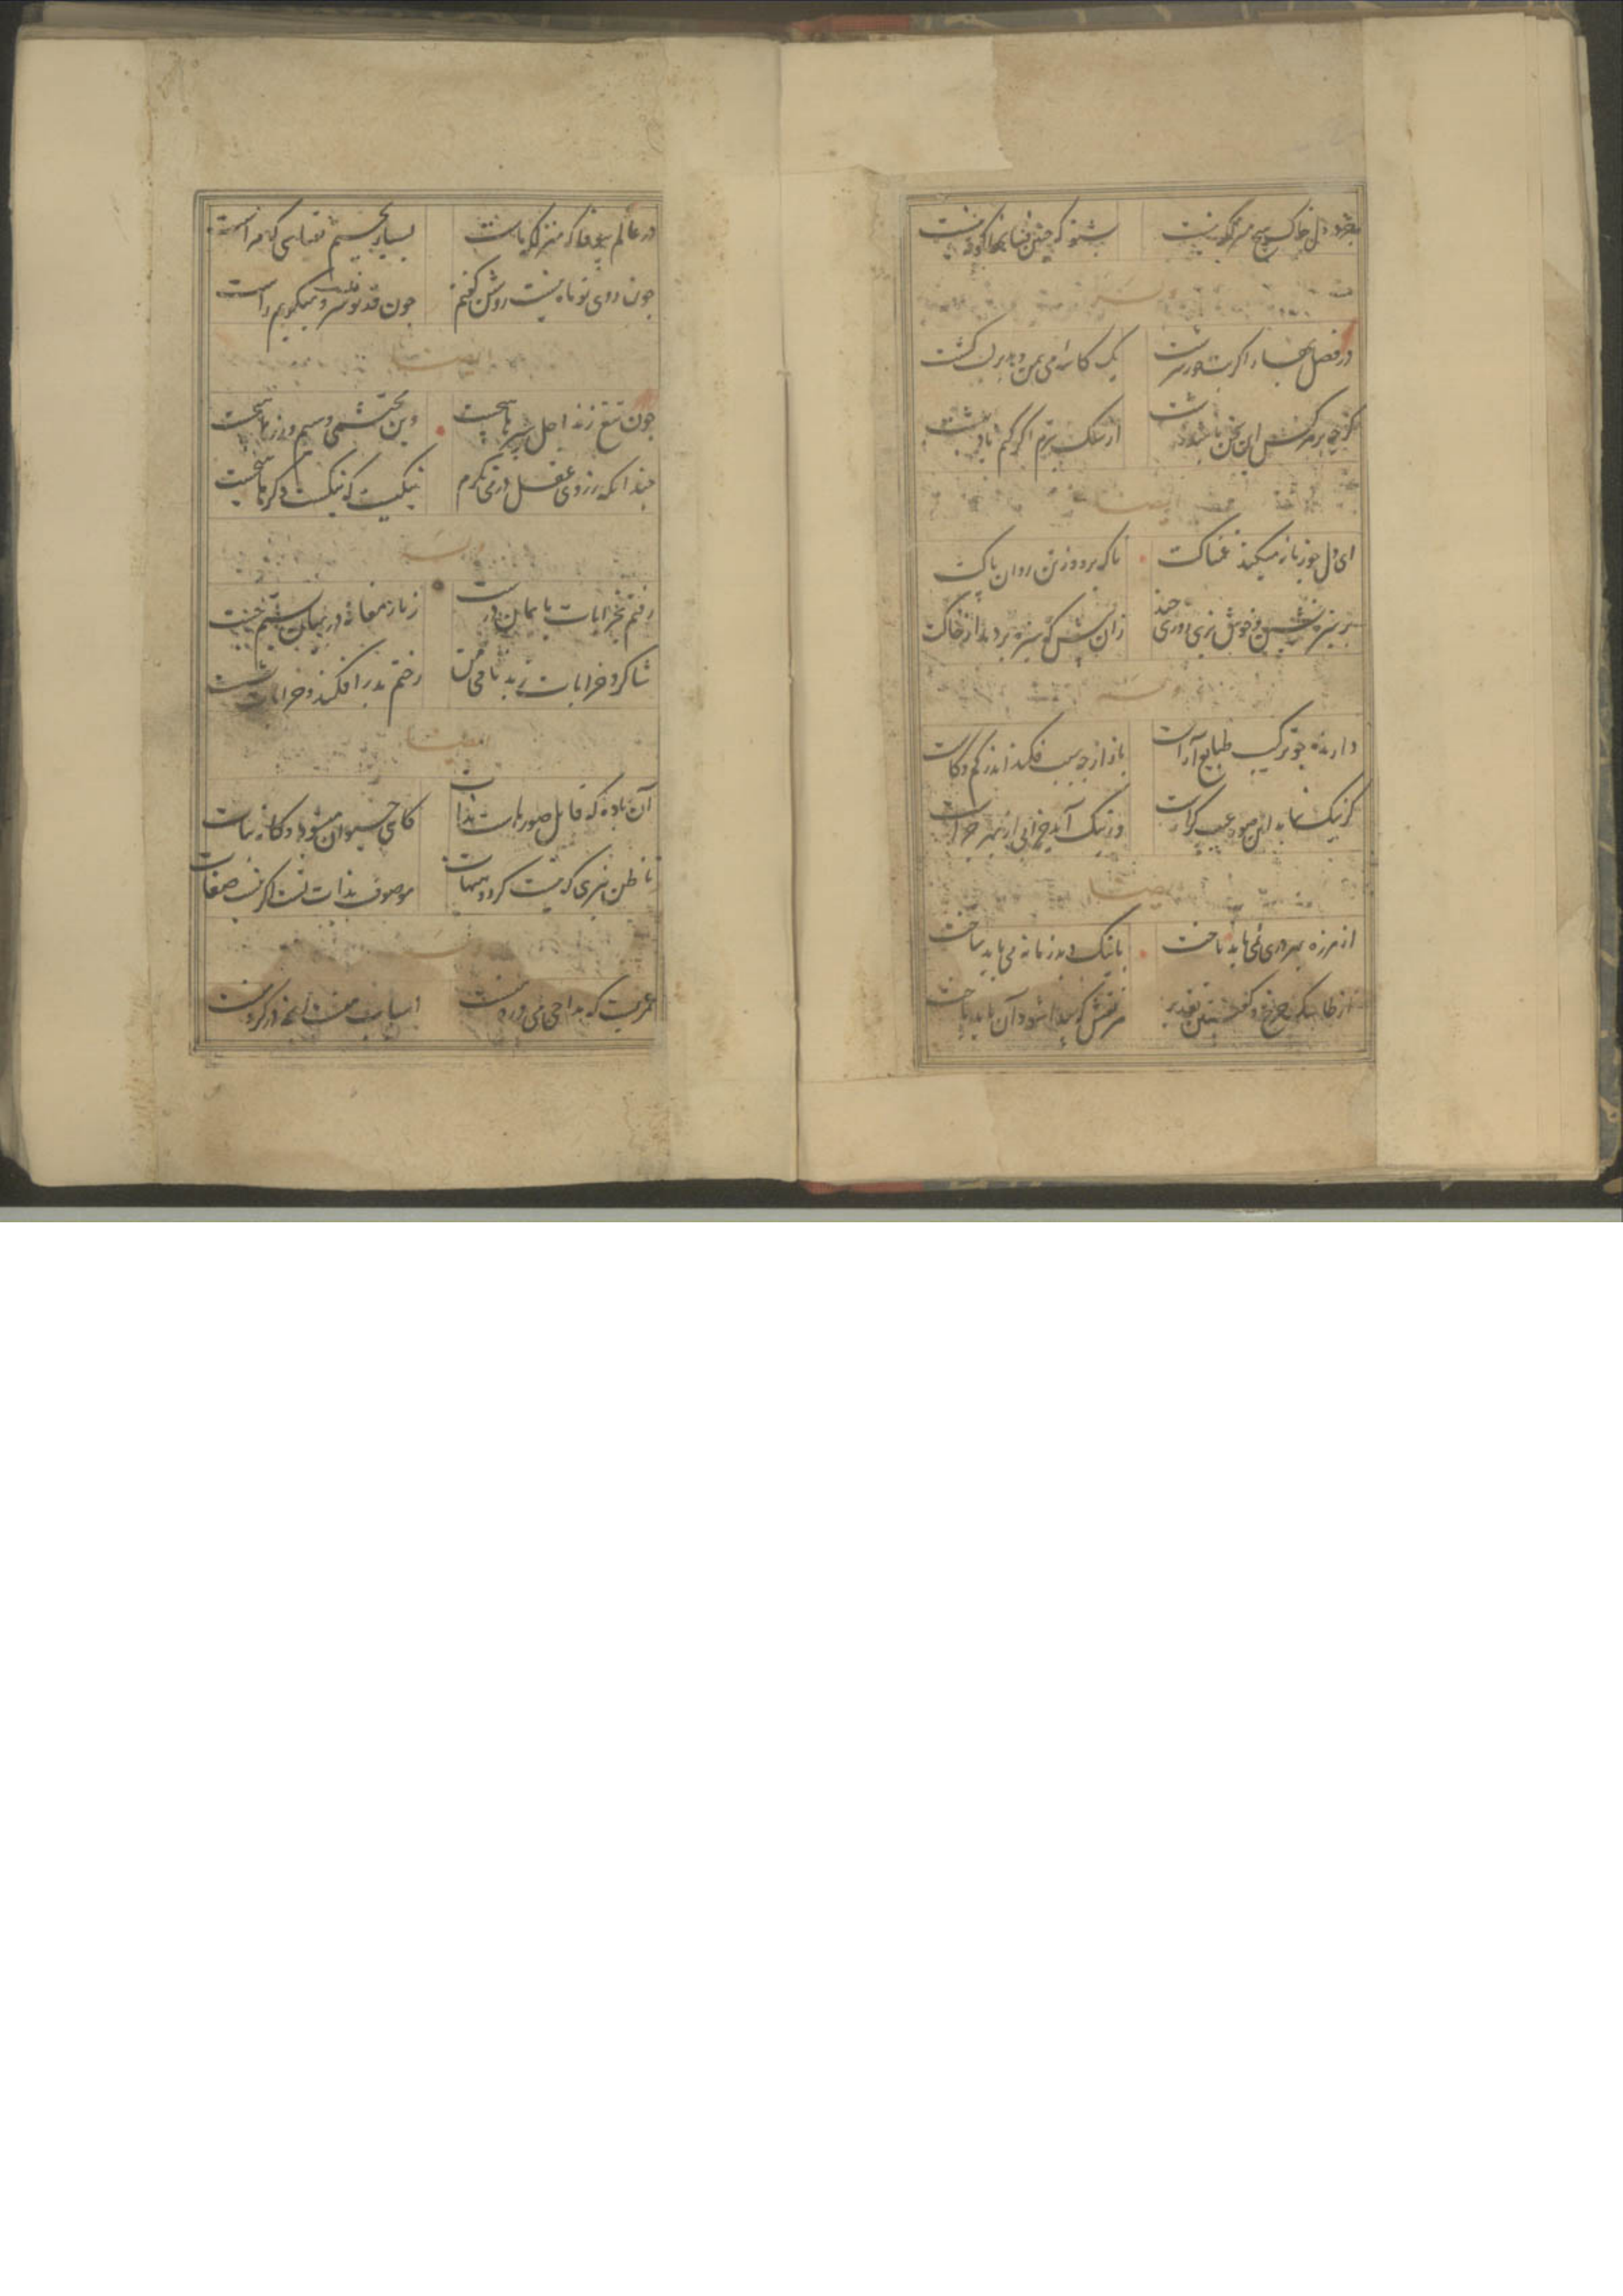 بجز در دل خاک هیچ منزلگه نیست    بشنو که چنین فسانها کوته نیست
وله
در فصل بهار اگر بت حور سرشت    یک کاسه می بمن دهد بر لب کشت
گرچه بر هرکس این سخن باشد زشت    از سگ بترم اگر کنم یاد بهشت
ایضا
ای دل چو زمانه میکند غمناکت    ناگه برود ز تن روان پاکت
بر سبزه نشین و خوش بزی روزی چند    زان پیش که سبزه بردمد از خاکت
وله
دارنده چو ترکیب طبایع آراست    باز از چه سبب فکند اندر کم و کاست
گر نیک نیامد این صور عیب کراست    ور نیک آمد خرابی از بهر چراست
ایضا
از هرزه بهر دری نمی باید تاخت    با نیک و بد زمانه می باید ساخت
از طاسک چرخ و کعبتین تقدیر    هر نقش که پیدا شود آن باید باخت
در عالم بیوفا که منزلگه ماست    بسیار بجستیم بقیاسی که مراست
چون روی تو ماه نیست روشن گفتم    چون قد تو سرو نیست میگویم راست
ایضا
چون تیغ زند اجل سپرها هیچست    وین محتشمی و سیم و زرها هیچست
چندانکه ز روی عقل در می نگرم    نیکیست که نیکست دگرها هیچست
وله
رفتم بخرابات بایمان درست    زنار مغانه در میان بستم چست
شاگرد خرابات ز بدنامی من    رختم بدر افکند و خرابات بشست
ایضا
آن باده که قابل صورهاست بذات    گاهی حیوان میشود و گاه نبات
تا ظن نبری که نیست گردد هیهات    موصوف بذاتست اگر نیست صفات
وله
عمریست که مداحی می ورد منست    اسباب میست آنچه در گرد منست